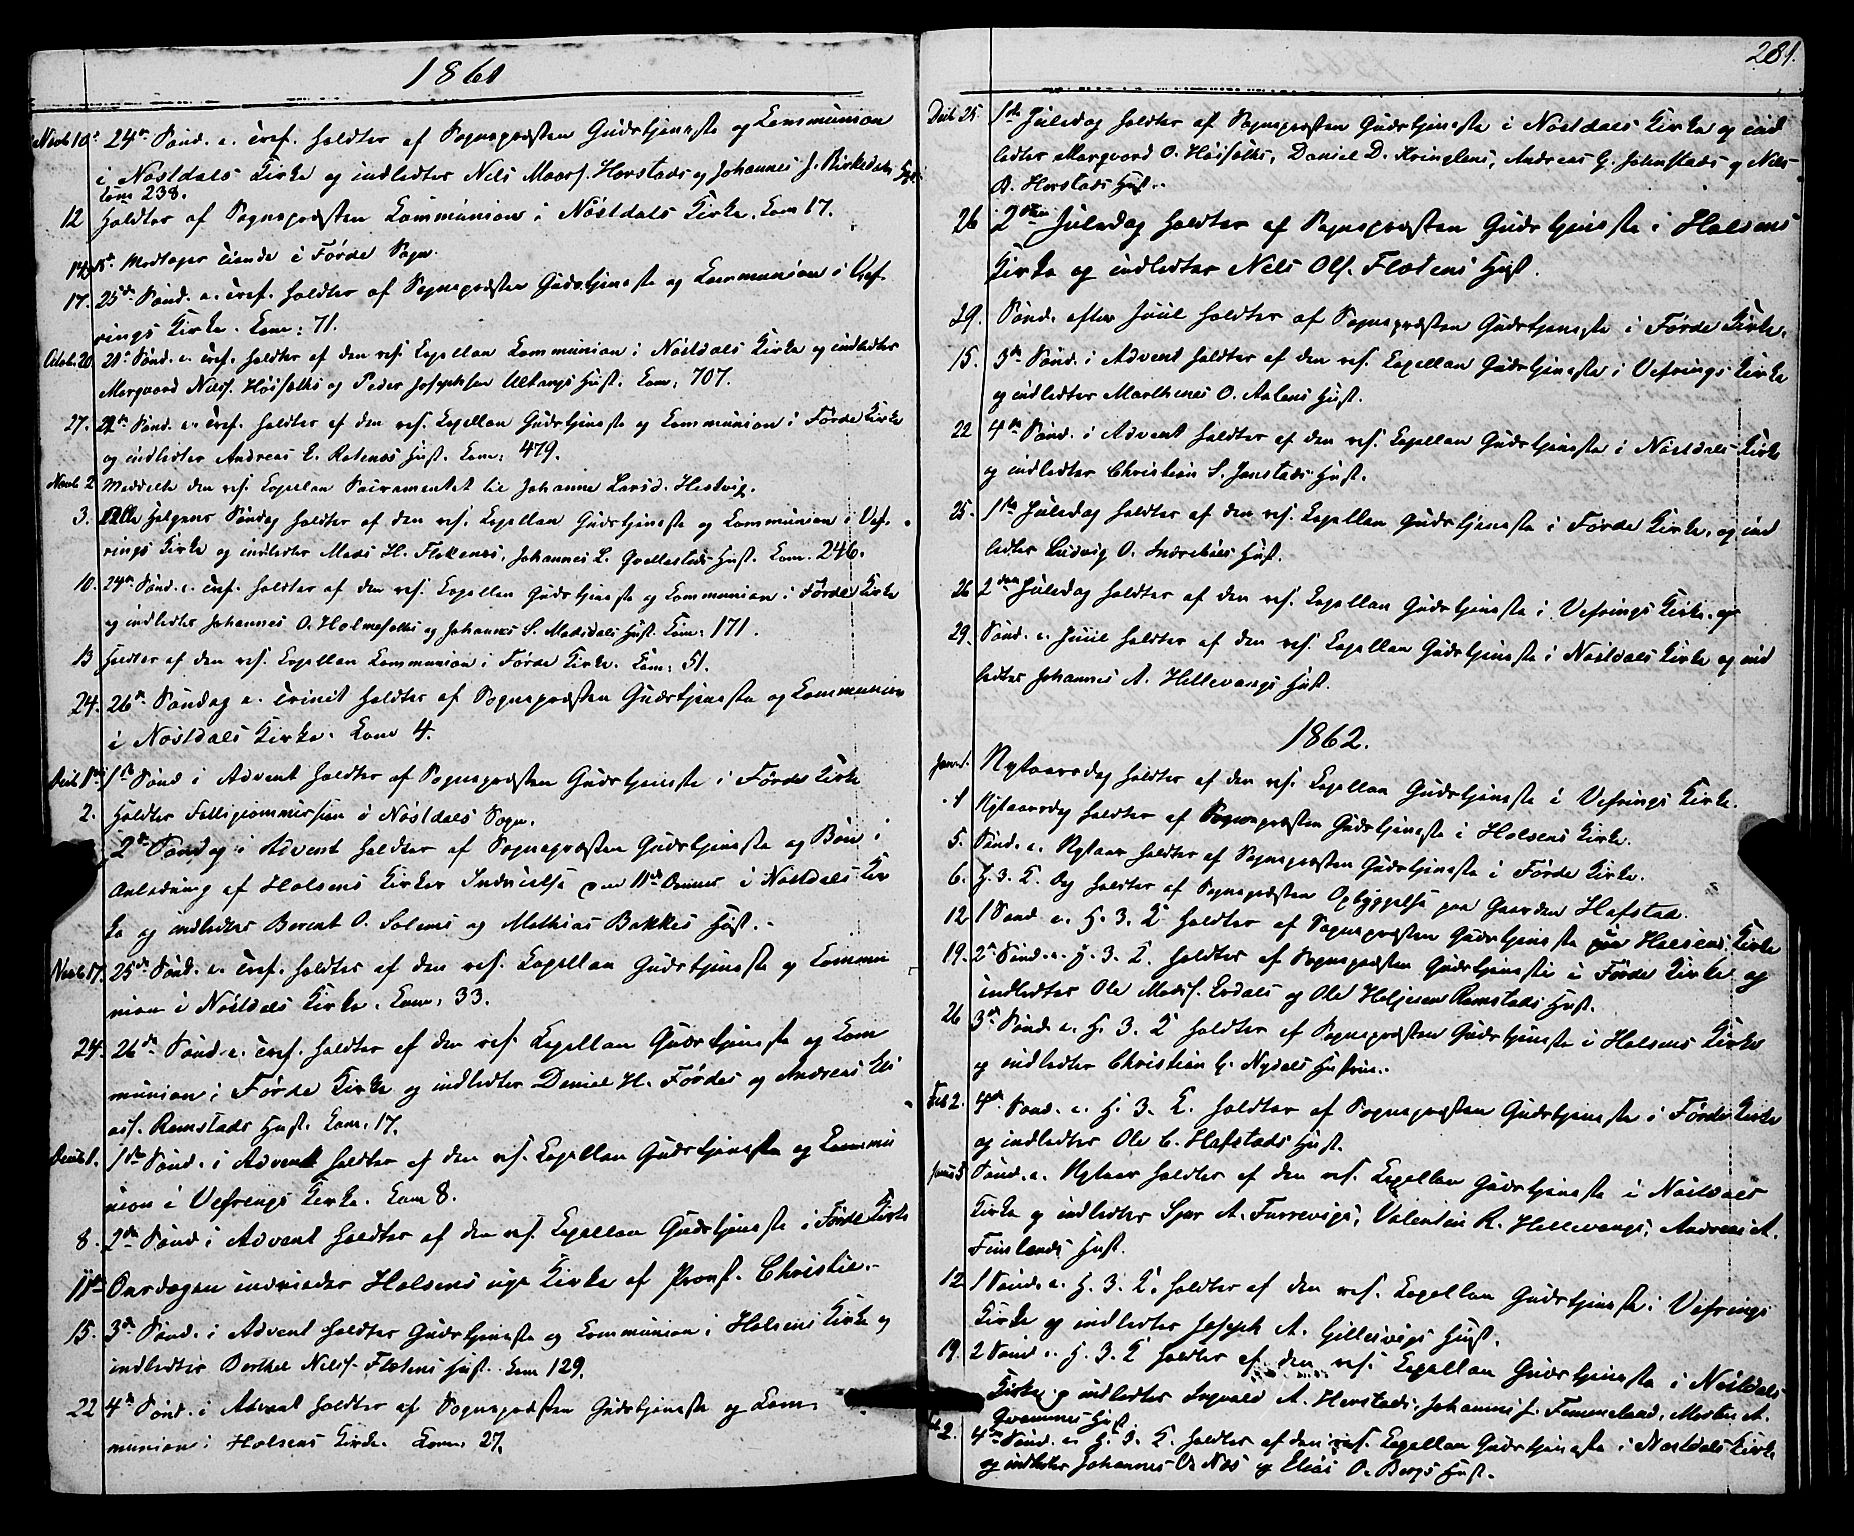 1861
Novb 10de 24de Sønd. e. Tref. holdtes af Sognepræsten Gudstjeneste og Communion
i Nøstdals Kirke og indledtes Nils Maars. Horstads og Johannes J. Birkedals Hust.
Com 238.
12 Holdtes af Sognepræsten Communion i Nøstdals Kirke. Com 17.
Modtoges Tiende i Førde Sogn.
17. 25de Sønd. e. Tref. holdtes af Sognepræsten Gudstjeneste og Communion i Vef
rings Kirke. Com: 71.
Octob. 20 21de Sønd. e. Tref. holdtes af den res. Capellan Communion i Nøstdals Kirke og indledtes
Margvard Nils. Høifolks og Peder Josephsen Ullangs Hust. Com: 707.
27. 22de Sønd. e. Tref. holdtes af den res. Capellan Gudstjeneste og Communion i Førde Kirke
og indledtes Andreas E. Rotenes Hust. Com: 479.
Novb 2 Meddelte den res. Capellan Sacramentet til Johanne Larsd. Hestvig.
3. Alle Helgens Søndag holdtes af den res. Capellan Gudstjeneste og Communion i Vef-
rings Kirke og indledtes Mads H. Flokenes, Johannes L. Qvellestads Hust. Com. 246.
10. 24de Sønd. e. Tref. holdtes af den res. Capellan Gudstjeneste og Communion i Førde Kirke
og indledtes Johannes O. Holmefolks og Johannes S. Madsdals Hust. Com: 171.
13 Holdtes af den res. Capellan Communion i Førde Kirke. Com: 51.
24. 26de Søndag e. Trinit holdtes af Sognepræsten Gudstjeneste og Communion
i Nøstdals Kirke. Com 4.
Decb 1ste 1ste Sønd i Advent holdtes af Sognepræsten Gudstjeneste i Førde Kirke
2. Holdtes Fattigcommission i Nøstdals Sogn.
2de Søndag i Advent holdtes af Sognepræsten Gudstjeneste og Bøn i
Anledning af Holsens Kirkes Indvielse den 11te Dennes i Nøstdals Kir
ke og indledtes Berent O. Solems og Mathias Bakkes Hust.
Novb 17. 25de Sønd. e. Tref. holdtes af den res. Capellan Gudstjeneste og Commu
nion i Nøstdals Kirke. Com: 33.
24. 26de Sønd. e. Tref. holdtes af den res. Capellan Gudstjeneste og Com
munion i Førde Kirke og indledtes Daniel H. Førdes og Andreas Eli
ass. Ramstads Hust. Com: 17.
Decb 1. 1ste Sønd. i Advent holdtes af den res. Capellan Gudstjeneste og Commu
nion i Vefrings Kirke. Com 8.
8. 2den Sønd i Advent holdtes af den res. Capellan Gudstjeneste i Førde Kirke
11te Onsdagen indviedes Holsens nye Kirke af Provst. Christie.
15. 3de Sønd. i Advent holdtes Gudstjeneste og Communion i Holsens Kirke og
indledtes Berthel Nilss. Flotens Hust. Com 129.
22 4de Sønd. i Advent holdtes af Sognepræsten Gudstjeneste og Com-
munion i Holsens Kirke. Com: 27.
281.
Decb 25. 1ste Juledag holdtes af Sognepræsten Gudstjeneste i Nøstdals Kirke og ind
ledtes Margvard O. Høifolks, Daniel D. Kringlens, Andreas G. Solenstads og Nils
D. Horstads Hust.
26 2den Juledag holdtes af Sognepræsten Gudstjeneste i Holsens
Kirke og indledtes Nils Ols. Flotens Hust.
29. Sønd. efter Juul holdtes af Sognepræsten Gudstjeneste i Førde Kirke.
15. 3de Sønd. i Advent holdtes af den res. Capellan Gudstjeneste i Vefrings Kirke
og indledtes Marthenes O. Aalens Hust.
22 4de Sønd. i Advent holdtes af den res. Capellan Gudstjeneste i Nøstdals Kirke
og indledtes Christian S. Jonstads Hust.
25. 1ste Juledag holdtes af den res. Capellan Gudstjeneste i Førde Kirke og ind
ledtes Ludvig O. Indrebøes Hust.
26 2den Juledag holdtes af den res. Capellan Gudstjeneste i Vefrings Kirke.
29. Sønd. e. Juul holdtes af den res. Capellan Gudstjeneste i Nøstdals Kirke og ind
ledtes Johannes A. Hellevangs Hust.
1862.
Nytaarsdag holdtes af den res. Capellan Gudstjeneste i Vefrings Kirke.
1 Nytaarsdag holdtes af Sognepræsten Gudstjeneste i Holsens Kirke.
5. Sønd. e. Nytaar holdtes af Sognepræsten Gudstjeneste i Førde Kirke.
6. H. 3. K. Dag holdtes af Sognepræsten Opbyggelse paa Gaarden Hafstad.
12 1 Sønd e. H. 3. K holdtes af Sognepræsten Gudstjeneste i Holsens Kirke
19. 2de Sønd. e. H. 3. K. holdtes af Sognepræsten Gudstjeneste i Førde Kirke og
indledtes Ole Mads. Erdals og Ole Heljesen Ramstads Hust.
26 3de Sønd. e. H. 3. K holdtes af Sognepræsten Gudstjeneste i Holsens Kirke
og indledtes Christian G. Nydals Hustru.
Feb 2. 4de Sønd. e. H. 3. K. holdtes af Sognepræsten Gudstjeneste i Førde Kirke
og indledtes Ole C. Hafstads Hust.
Janu 5 Sønd. e. Nytaar holdtes af den res. Capellan Gudstjeneste i Nøstdals
Kirke og indledtes Sjur A. Furrevigs, Valentin R. Hellevangs, Andreas A.
Fimlands Hust.
12 1 Sønd. e. H. 3. K. holdtes af den res. Capellan Gudstjeneste i Vefrings
Kirke og indledtes Joseph A. Gillesvigs Hust.
19. 2 Sønd e. H. 3. K holdtes af den res. Capellan Gudstjeneste i Nøstdals
Kirke og indledtes Ingvald A. Horstads, Johannes J. Femmeland, Morten A.
Qvammes Hust.
2. 4de Sønd. e. H. 3. K. holdtes af den res. Capellan Gudstjeneste i Nøstdals Kirke
og indledtes Johannes O. Næs og Elias O. Bergs Hust.